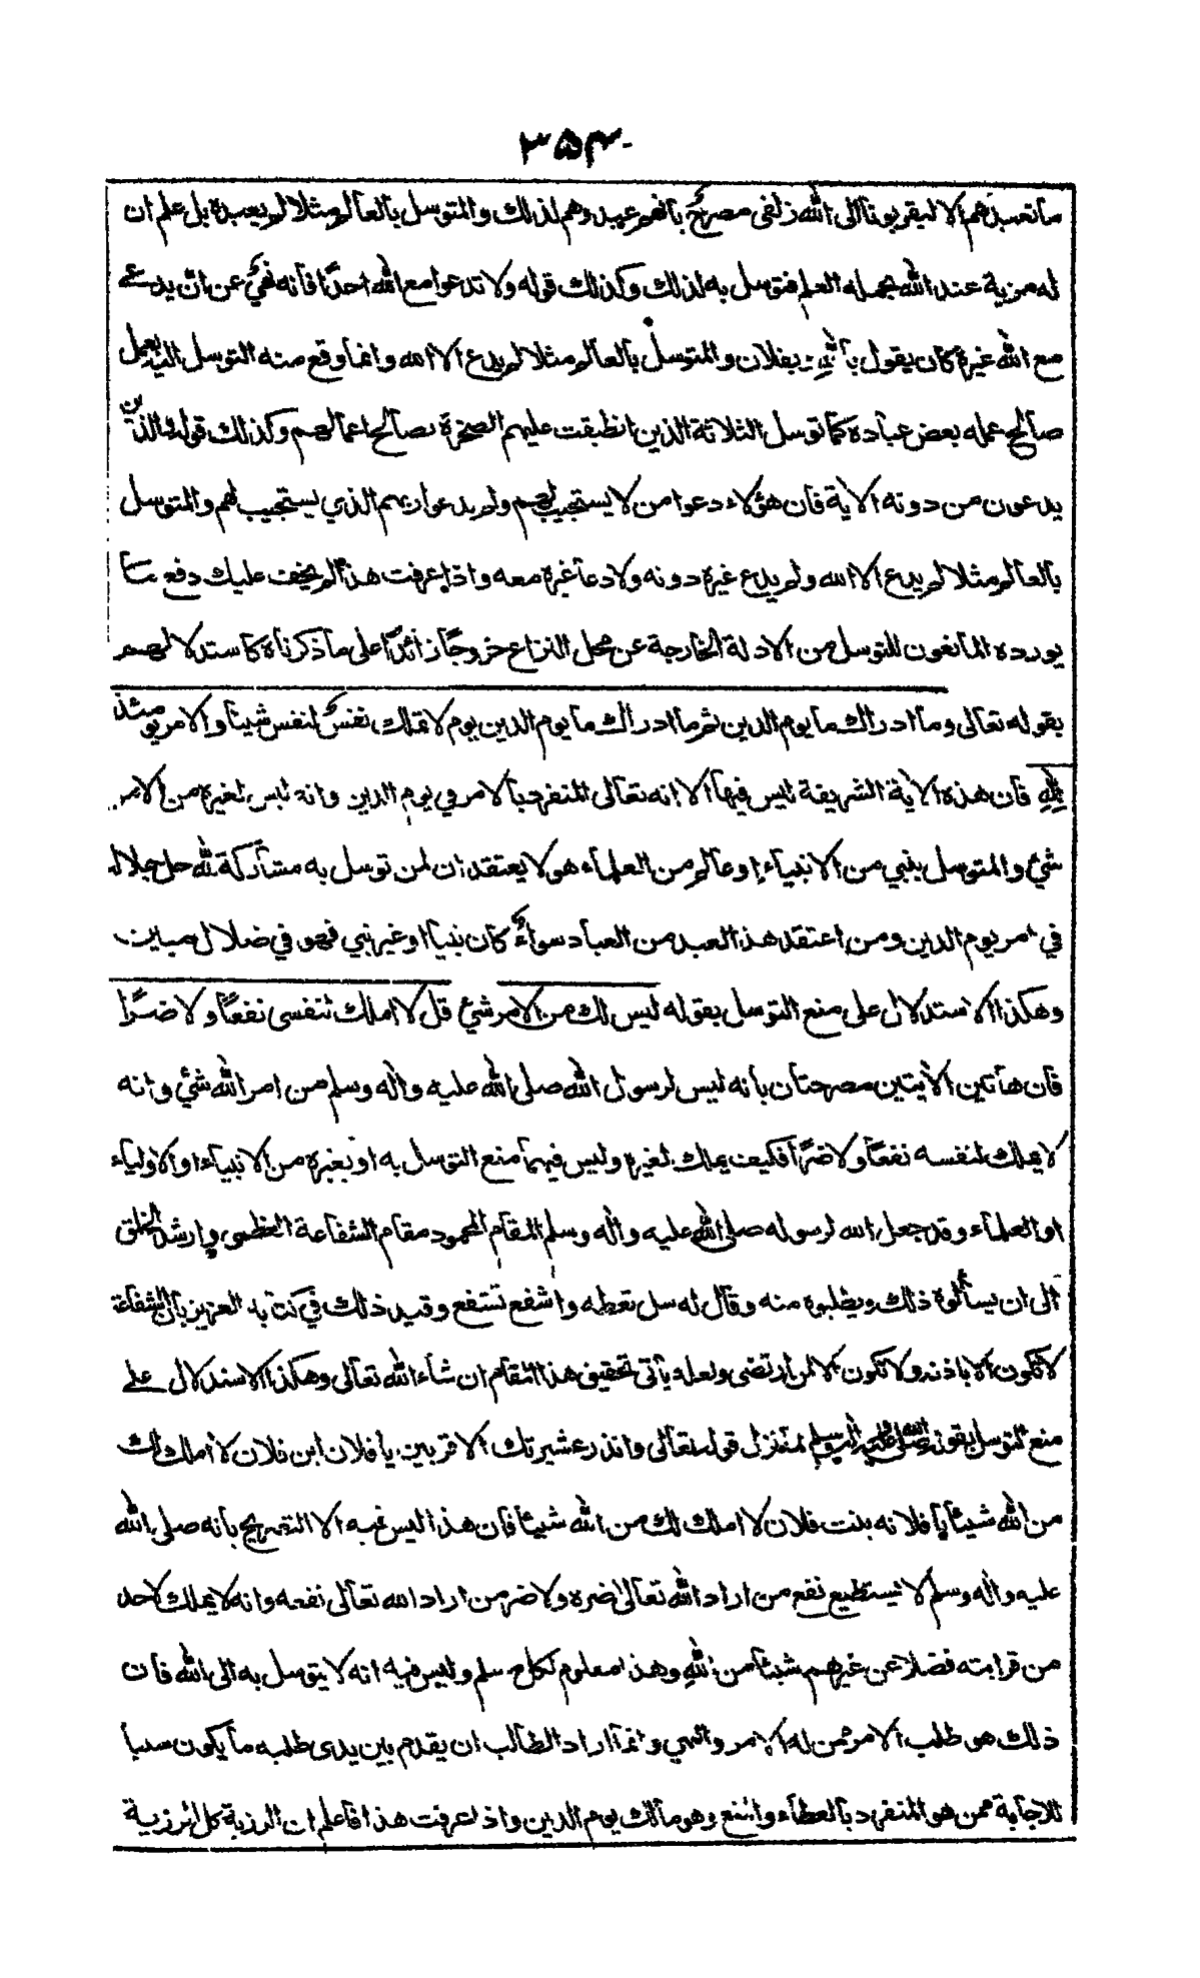 ٣٥٤
ما نعبدهم الا ليقربونا الى الله زلفى مصرح بانهم عبدوهم لذلك والمتوسل بالعالم مثلا لم يعبده بل علم ان
له مزية عند الله بحمله العلم فتوسل به لذلك وكذلك قوله ولا تدعوا مع الله احدا فانه نهي عن ان يدعى
مع الله غيره كان يقول بالله وبفلان والمتوسل بالعالم مثلا لم يدع الا الله وانما وقع منه التوسل اليه بعمل
صالح عمله بعض عباده كما توسل الثلاثة الذين انطبقت عليهم الصخرة بصالح اعمالهم وكذلك قوله والذين
يدعون من دونه الاية فان هؤلاء دعوا من لا يستجيب لهم ولم يدعوا ربهم الذي يستجيب لهم والمتوسل
بالعالم مثلا لم يدع الا الله ولم يدع غيره دونه ولا دعا غيره معه واذا عرفت هذا لم يخف عليك دفع ما
يورده المانعون للتوسل من الادلة الخارجة عن محل النزاع خروجًا زائدًا على ما ذكرناه كاستدلالهم
بقوله تعالى وما ادراك ما يوم الدين ثم ما ادراك ما يوم الدين يوم لا تملك نفسٌ لنفس شيئا والامر يومئذ
لله فان هذه الاية الشريفة ليس فيها الا انه تعالى المنفرد بالامر في يوم الدين وانه ليس لغيره من الامر
شيئ والمتوسل بنبي من الانبياء او عالم من العلماء هو لا يعتقد ان لمن توسل به مشاركة لله جل جلاله
في امر يوم الدين ومن اعتقد هذا لعبد من العباد سواءٌ كان نبيا او غير نبي فهو في ضلال مبين
وهكذا الاستدلال على منع التوسل بقوله ليس لك من الامر شيئ قل لا املك لنفسى نفعًا ولا ضرًا
فان هاتين الايتين مصرحتان بانه ليس لرسول الله صلى الله عليه واله وسلم من امر الله شيئ وانه
لا يملك لنفسه نفعًا ولا ضرًا فكيف يملك لغيره وليس فيهما منع التوسل به او بغيره من الانبياء او الاولياء
او العلماء وقد جعل الله لرسوله صلى الله عليه واله وسلم المقام المحمود مقام الشفاعة العظمى وارشد الخلق
الى ان يسألوه ذلك ويطلبوه منه وقال له سل تعطه واشفع تشفع وقيد ذلك في كتابه العزيز بان الشفاعة
لا تكون الا باذنه ولا تكون الا لمن ارتضى ولعله يأتى تحقيق هذا المقام ان شاء الله تعالى وهكذا الاستدلال على
منع التوسل بقوله صلى الله عليه واله وسلم لما نزل قوله تعالى وانذر عشيرتك الاقربين يا فلان ابن فلان لا املك لك
من الله شيئا يا فلانه بنت فلان لا املك لك من الله شيئا فان هذا ليس فيه الا التصريح بانه صلى الله
عليه واله وسلم لا يستطيع نفع من اراد الله تعالى ضره ولا ضر من اراد الله تعالى نفعه وانه لا يملك لاحد
من قرابته فضلا عن غيرهم شيئا من الله وهذا معلوم لكل مسلم وليس فيه انه لا يتوسل به الى الله فان
ذلك هو طلب الامر ممن له الامر والنهي وانما اراد الطالب ان يقدم بين يدى طلبه ما يكون سببا
للاجابة ممن هو المنفرد بالعطاء والمنع وهو مالك يوم الدين واذا عرفت هذا فاعلم ان الرزية كل الرزية